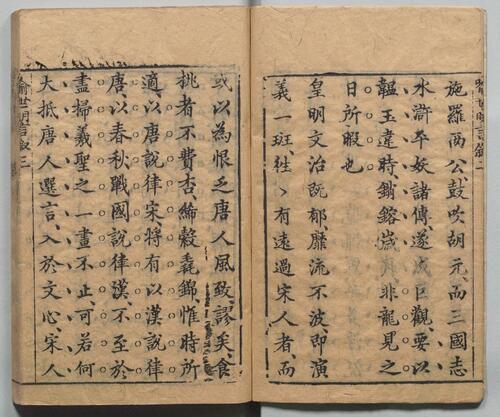 施羅兩公、鼓吹胡元、而三國志
水滸平妖諸傳、遂成巨觀、要以
韞玉違時、銷鎔歲月、非龍見之
日所暇也
皇明文治既郁、靡流不波、即演
義一斑、往丶有遠過宋人者、而
或以為恨乏唐人風致、謬矣、食
桃者不費杏、絺縠毳錦、惟時所
適、以唐說律宋、將有以漢說律
唐、以春秋戰國說律漢、不至於
盡掃羲聖之一畫不止、可若何
大抵唐人選言、入於文心、宋人
喻世明言敘三